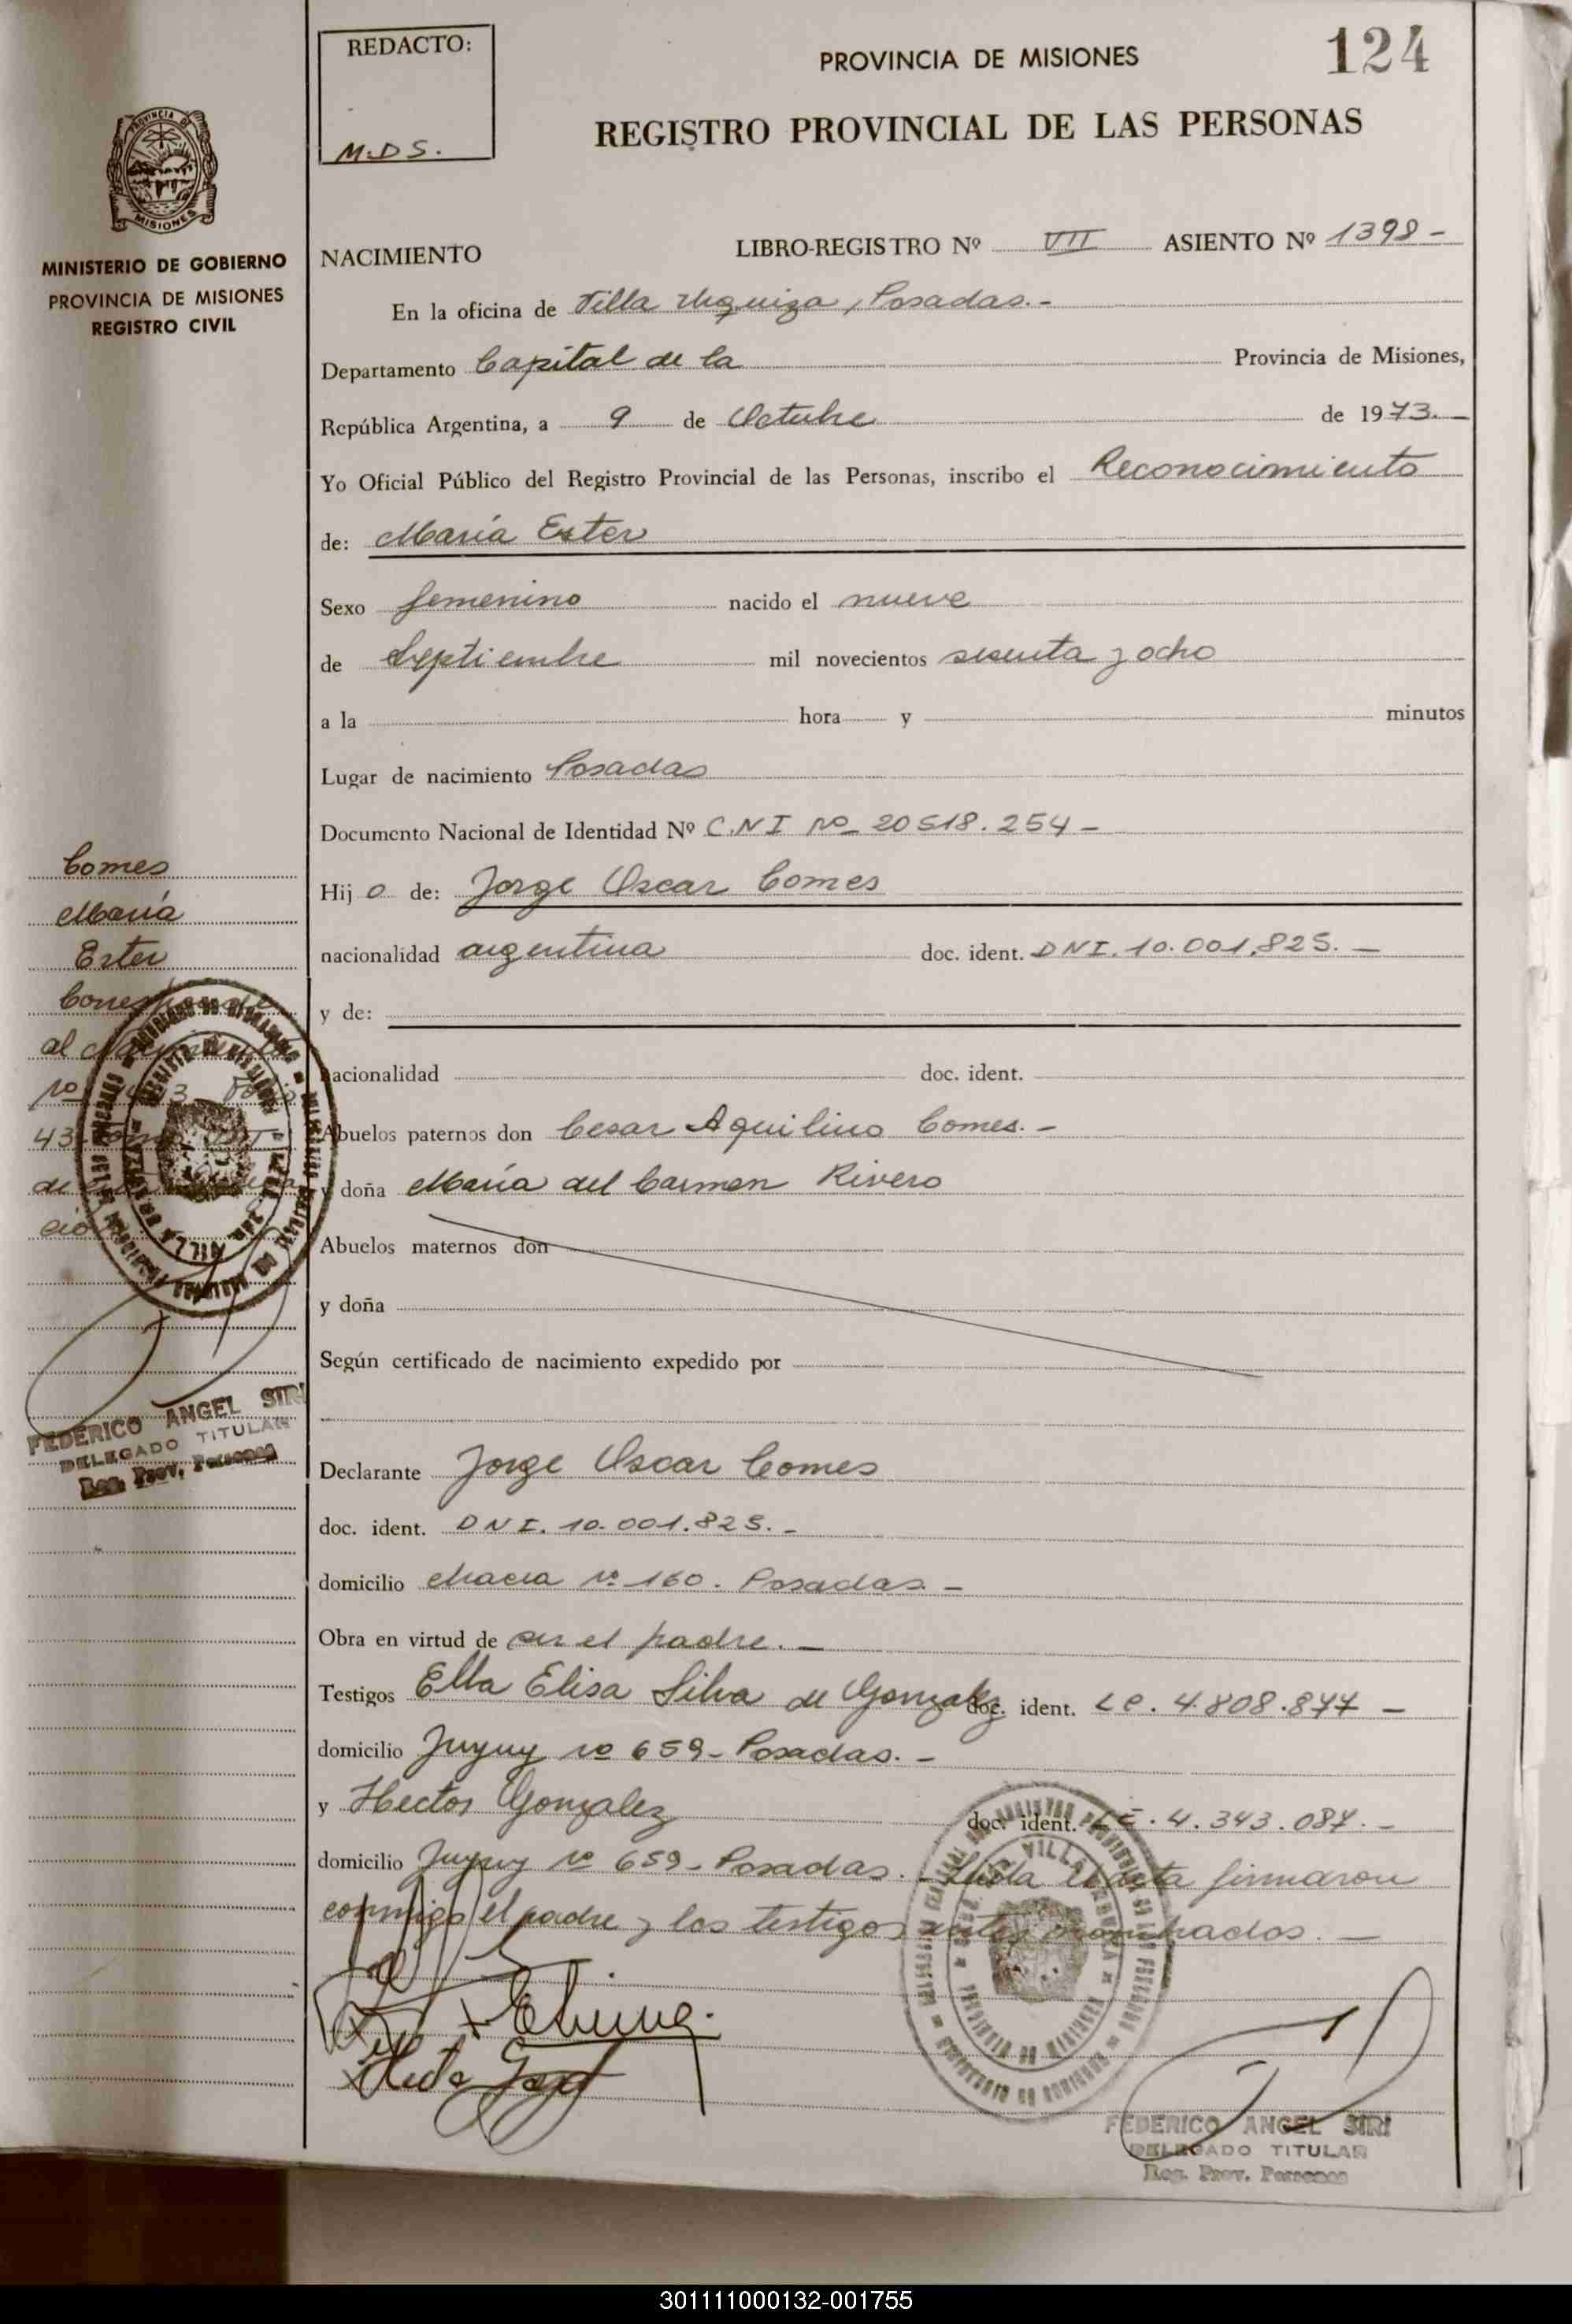 REDACTO:
M.D.S.
PROVINCIA DE MISIONES
124
REGISTRO PROVINCIAL DE LAS PERSONAS
PROVINCIA DE
MISIONES
MINISTERIO DE GOBIERNO
PROVINCIA DE MISIONES
REGISTRO CIVIL
NACIMIENTO LIBRO-REGISTRO Nº VII ASIENTO Nº 1398-
En la oficina de Villa Urquiza, Posadas.-
Departamento Capital de la Provincia de Misiones,
República Argentina, a 9 de Octubre de 1973.-
Yo Oficial Público del Registro Provincial de las Personas, inscribo el Reconocimiento
de: María Ester
Sexo femenino nacido el nueve
de Septiembre mil novecientos sesenta y ocho
a la hora y minutos
Lugar de nacimiento Posadas
Documento Nacional de Identidad Nº C.N.I Nº 20518.254-
Hijo de: Jorge Oscar Comes
nacionalidad argentina doc. ident. DNI. 10.001.825.-
y de:
nacionalidad doc. ident.
Abuelos paternos don Cesar Aquilino Comes.-
y doña María del Carmen Rivero
Abuelos maternos don
y doña
Según certificado de nacimiento expedido por
Declarante Jorge Oscar Comes
doc. ident. DNI. 10.001.825.-
domicilio Chacra Nº 160. Posadas.-
Obra en virtud de ser el padre.-
Testigos Elba Elisa Silva de Gonzalez doc. ident. LC. 4.808.877-
domicilio Jujuy Nº 659- Posadas.-
y Hector Gonzalez doc. ident. LE. 4.343.087.-
domicilio Jujuy Nº 659- Posadas. Leída el acta firmaron
conmigo el padre y los testigos antes nombrados.-
Comes
María
Ester
Corresponde
al Nacimiento
Nº
43
de
FEDERICO ANGEL SIRI
DELEGADO TITULAR
Reg. Prov. Personas
VILLA
FEDERICO ANGEL SIRI
DELEGADO TITULAR
Reg. Prov. Personas
301111000132-001755